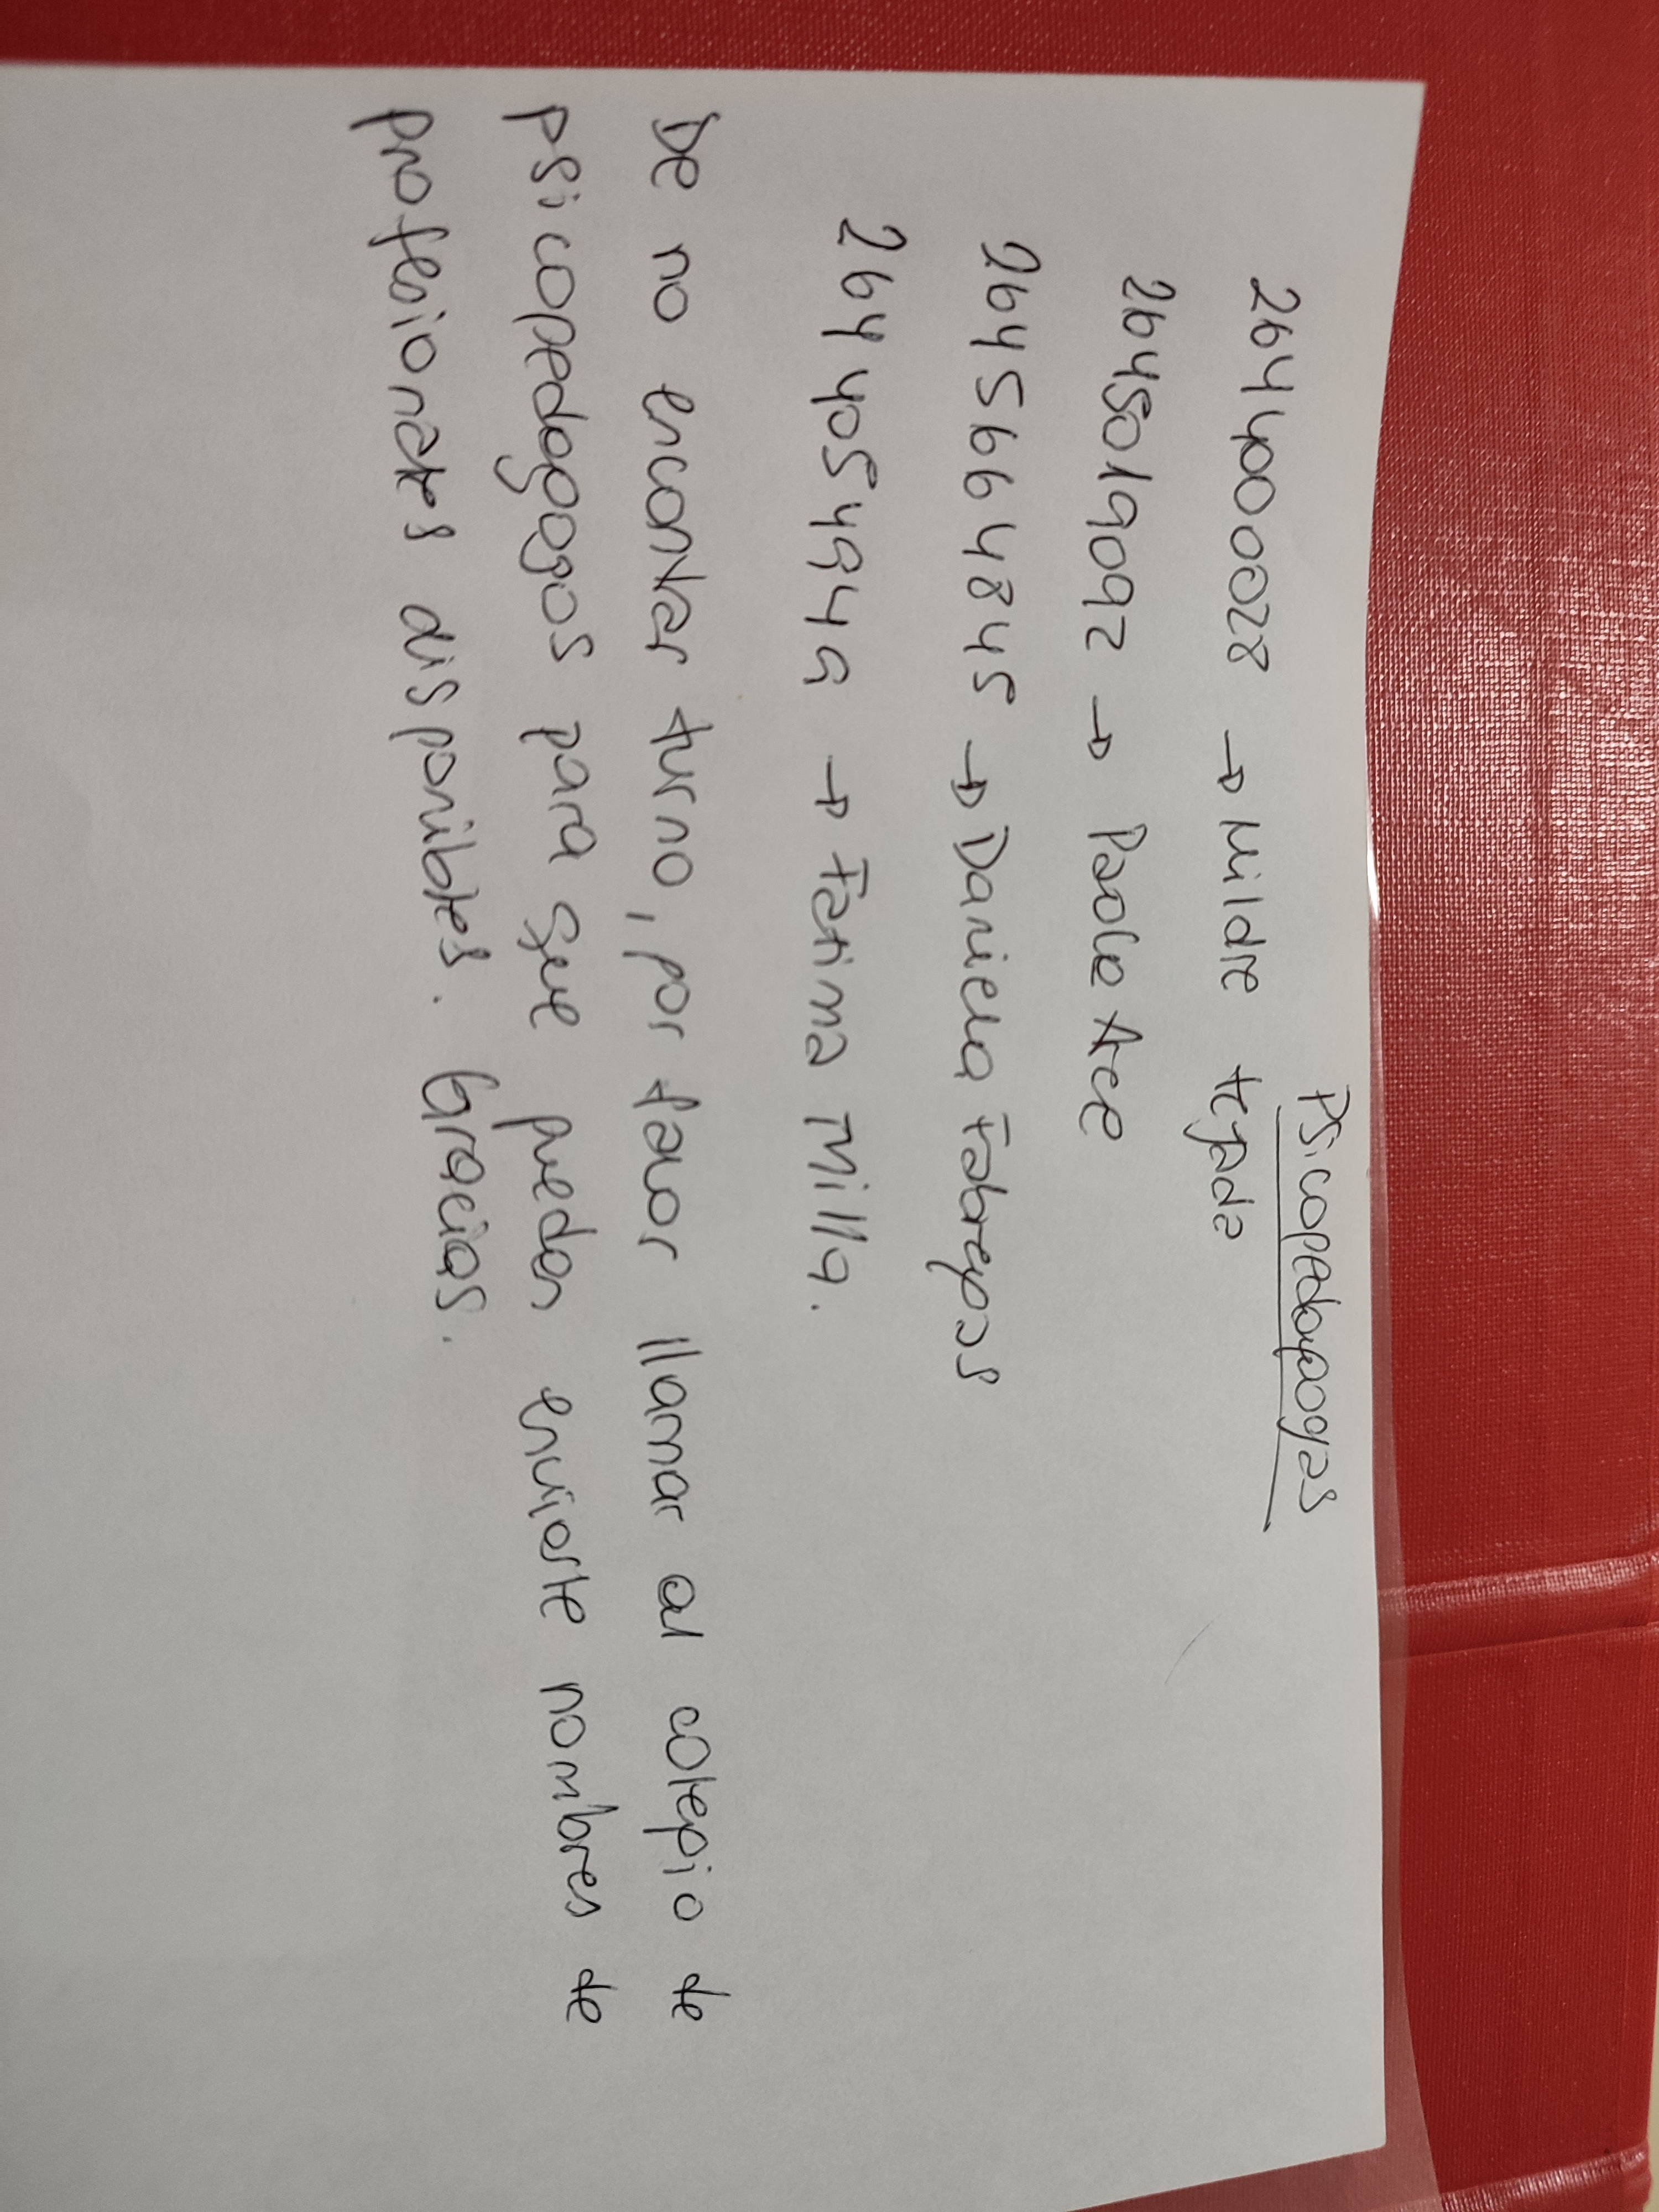 Psicopedagogas
2644400028 → Mildre tejada
2645019092 → Paola Arce
264 5664845 → Daniela Fabregas
264 4054949 → Fatima Milla.
De no encontrar turno, por favor llamar al colegio de
psicopedagogos para que puedan enviarte nombres de
profesionales disponibles. Gracias.